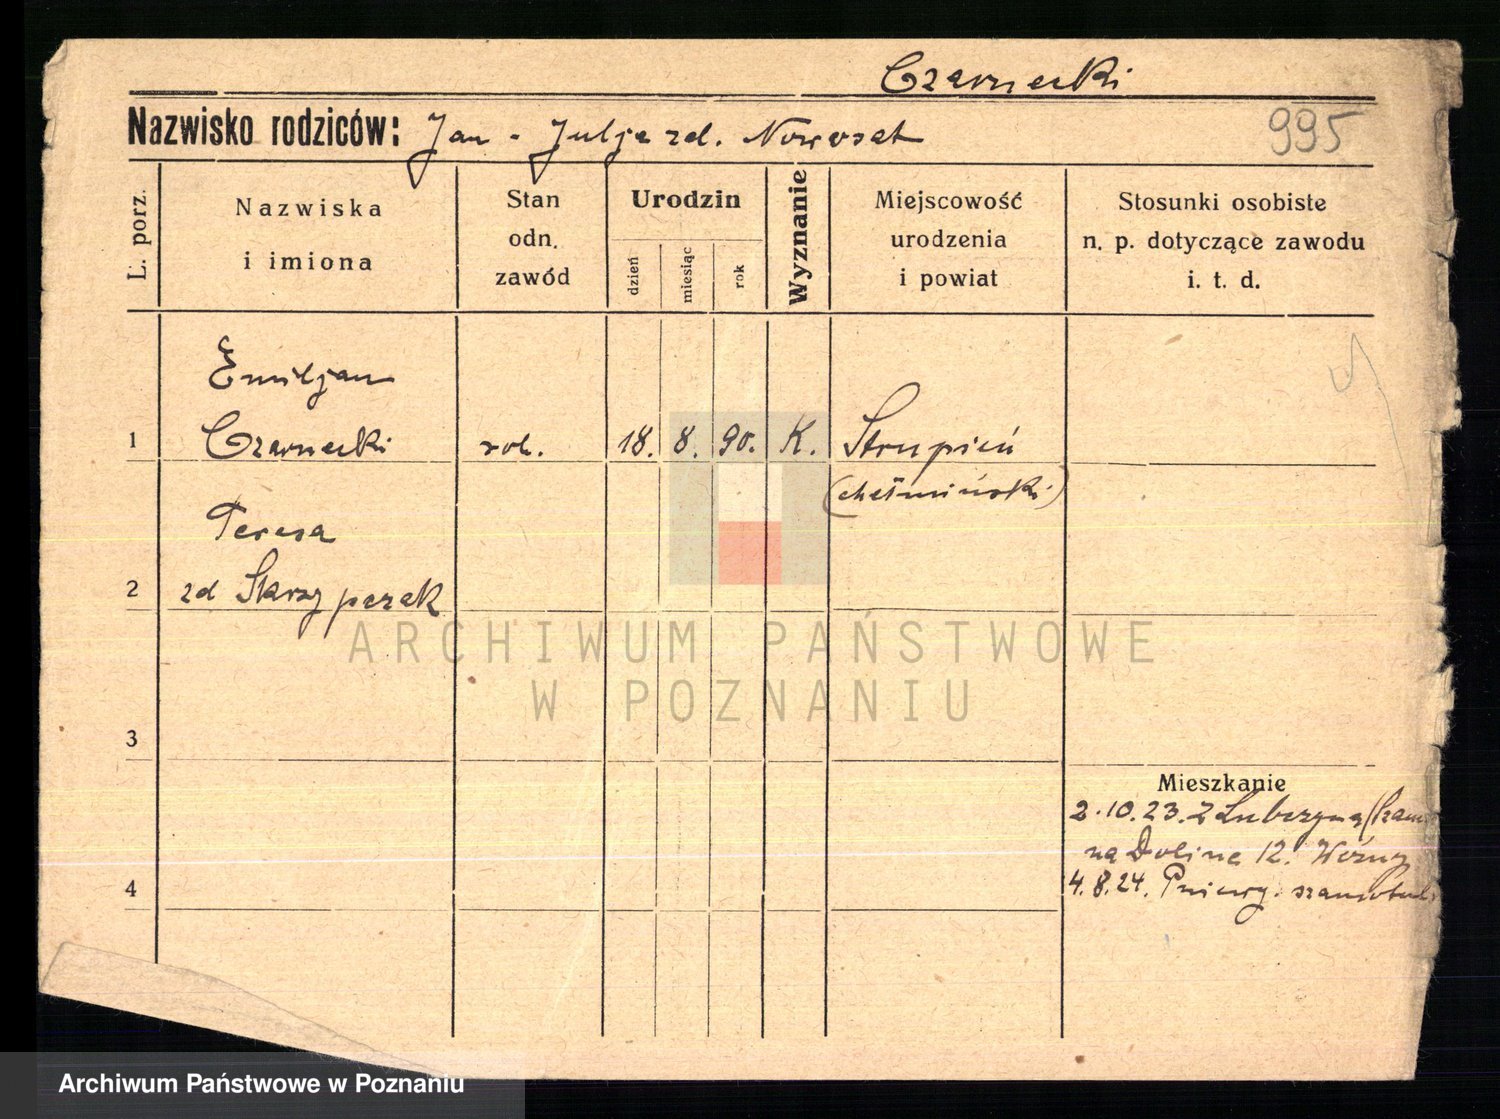 Czarnecki
Nazwisko rodziców: Jan - Julja zd. Nowosat
995
L. porz.
Nazwiska
i imiona
Stan
odn.
zawód
Urodzin
dzień
miesiąc
rok
Wyznanie
Miejscowość
urodzenia
i powiat
Stosunki osobiste
n. p. dotyczące zawodu
i. t. d.
Emiljan
1 Czarnecki rob. 18. 8. 90. K. Strupień
(chełmiński)
Teresa
2 zd Skrzypczak
ARCHIWUM PAŃSTWOWE
W POZNANIU
3
Mieszkanie
2.10.23. z
na Dolinę 12. Woźny
4
4.8.24. Pniewy. szamotul.
Archiwum Państwowe w Poznaniu